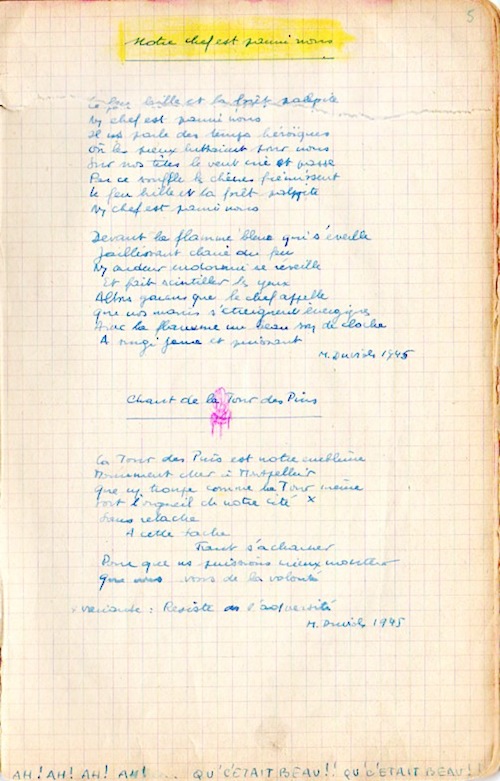 5
Notre chef est parmi nous
Le feu brille et la forêt palpite
Ns chef est parmi nous
Il ns parle des temps héroïques
Où les preux luttaient pour nous
Sur nos têtes le vent crie et passe
Par ce souffle les chênes frémissent
Le feu brille et la forêt palpite
Ns chef est parmi nous
Devant la flamme bleue qui s'éveille
Jaillissant claire du feu
Ns ardeur endormie se réveille
Et fait scintiller les yeux
Allons garçons que le chef appelle
Que nos mains s'étreignent énergiques
Avec la flamme un beau son de cloche
A surgi jeune et puissant
M. Duvids 1945
Chant de la Tour des Pins
La Tour des Pins est notre emblème
Monument cher à Montpellier
Que ns troupe comme la Tour même
Soit l'orgueil de notre cité x
Sans relache
A cette tache
Faut s'acharner
Pour que ns puissions mieux montrer
Que nous avons de la volonté
x variante : Resiste ds l'adversité
M. Duvids 1945
AH! AH! AH! AH! ... QU'C'ETAIT BEAU!! QU'C'ETAIT BEAU!!